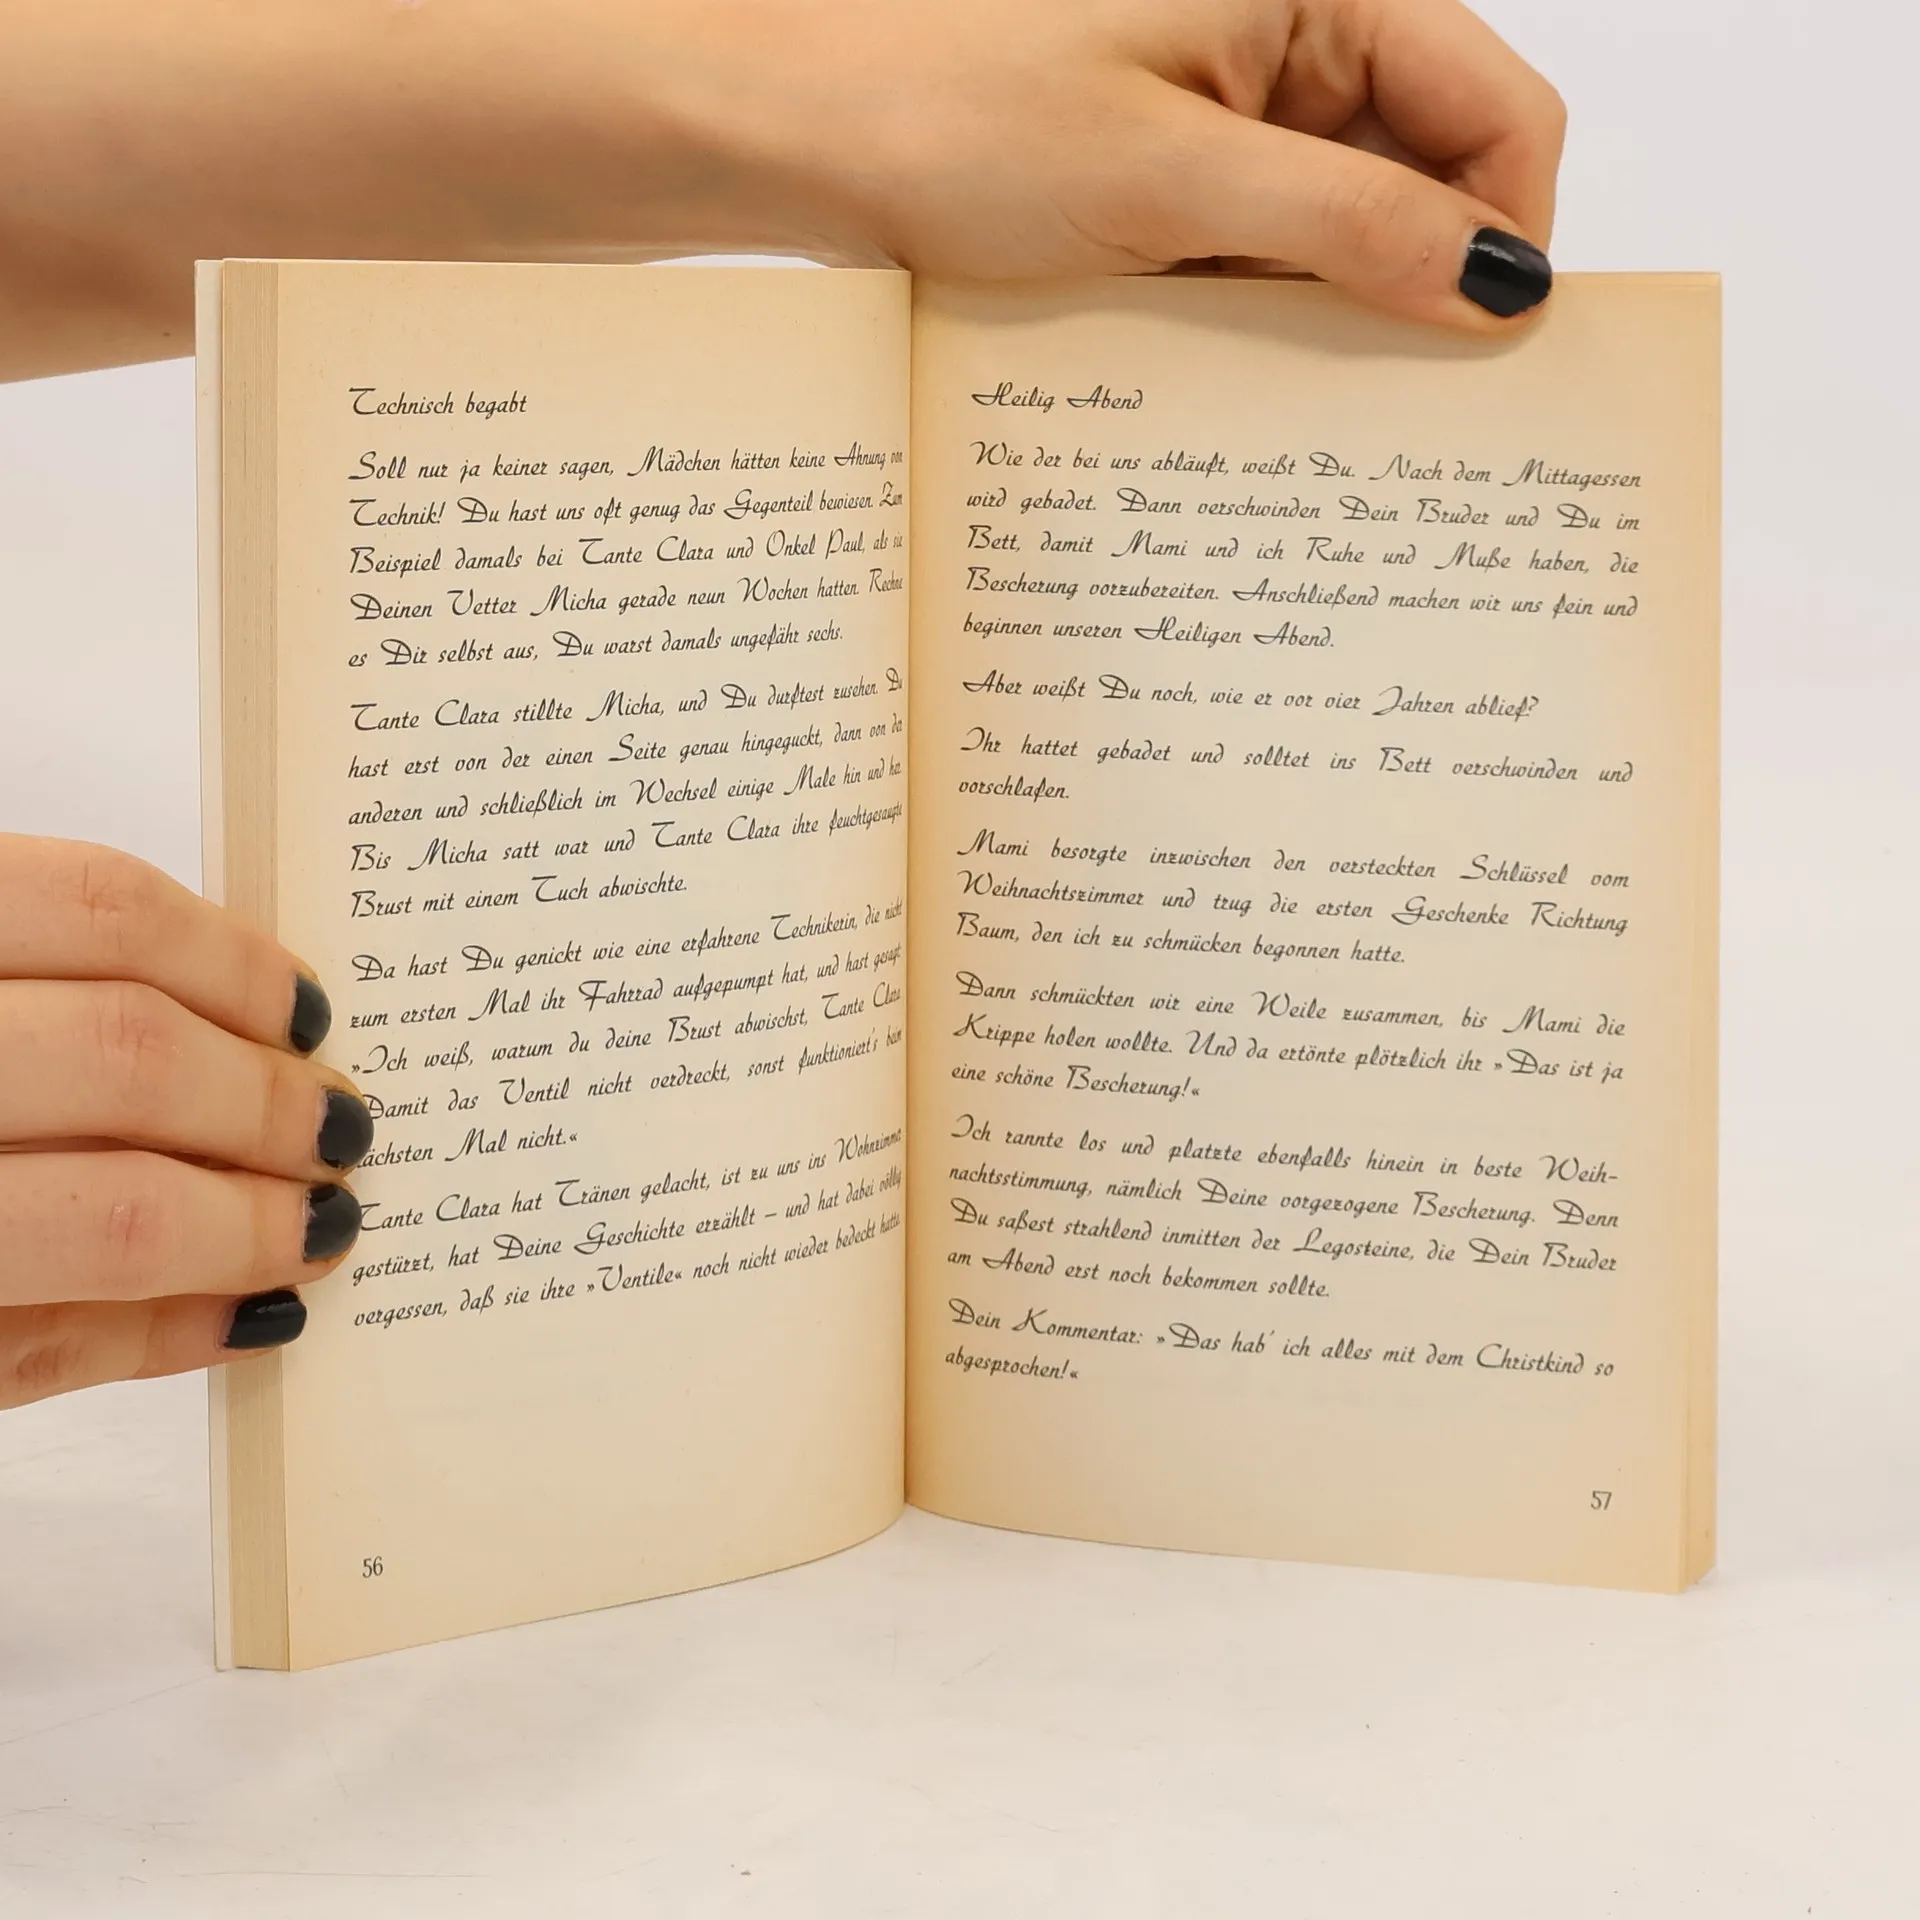 Technisch begabt
Soll nur ja keiner sagen, Mädchen hätten keine Ahnung von
Technik! Du hast uns oft genug das Gegenteil bewiesen. Zum
Beispiel damals bei Tante Clara und Onkel Paul, als sie
Deinen Vetter Micha gerade neun Wochen hatten. Rechne
es Dir selbst aus, Du warst damals ungefähr sechs.
Tante Clara stillte Micha, und Du durftest zusehen. Du
hast erst von der einen Seite genau hingeguckt, dann von der
anderen und schließlich im Wechsel einige Male hin und her.
Bis Micha satt war und Tante Clara ihre feuchtgesaugte
Brust mit einem Tuch abwischte.
Da hast Du genickt wie eine erfahrene Technikerin, die nicht
zum ersten Mal ihr Fahrrad aufgepumpt hat, und hast gesagt:
»Ich weiß, warum du deine Brust abwischst, Tante Clara.
Damit das Ventil nicht verdreckt, sonst funktioniert's beim
ächsten Mal nicht.«
Tante Clara hat Tränen gelacht, ist zu uns ins Wohnzimmer
gestürzt, hat Deine Geschichte erzählt – und hat dabei völlig
vergessen, daß sie ihre »Ventile« noch nicht wieder bedeckt hatte.
56
Heilig Abend
Wie der bei uns abläuft, weißt Du. Nach dem Mittagessen
wird gebadet. Dann verschwinden Dein Bruder und Du im
Bett, damit Mami und ich Ruhe und Muße haben, die
Bescherung vorzubereiten. Anschließend machen wir uns fein und
beginnen unseren Heiligen Abend.
Aber weißt Du noch, wie er vor vier Jahren ablief?
Ihr hattet gebadet und solltet ins Bett verschwinden und
vorschlafen.
Mami besorgte inzwischen den versteckten Schlüssel vom
Weihnachtszimmer und trug die ersten Geschenke Richtung
Baum, den ich zu schmücken begonnen hatte.
Dann schmückten wir eine Weile zusammen, bis Mami die
Krippe holen wollte. Und da ertönte plötzlich ihr »Das ist ja
eine schöne Bescherung!«
Ich rannte los und platzte ebenfalls hinein in beste Weih-
nachtsstimmung, nämlich Deine vorgezogene Bescherung. Denn
Du saßest strahlend inmitten der Legosteine, die Dein Bruder
am Abend erst noch bekommen sollte.
Dein Kommentar: »Das hab' ich alles mit dem Christkind so
abgesprochen!«
57